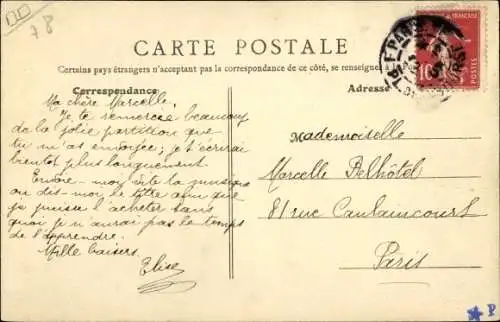 78
CARTE POSTALE
Certains pays étrangers n'acceptant pas la correspondance de ce côté, se renseigner à
Correspondance
Adresse
Ma chère Marcelle,
Je te remercie beaucoup
de la jolie partition que
tu m'as envoyée; je t'écrirai
bientôt plus longuement
Envoie-moi vite la musique
ou dis-moi le titre afin que
je puisse l'acheter sans
quoi je n'aurai pas le temps
de l'apprendre.
Mille baisers.
Elise
Mademoiselle
Marcelle Belhôtel
81 rue Caulaincourt
Paris
FRANÇAISE
POSTES
10
PARIS
* P